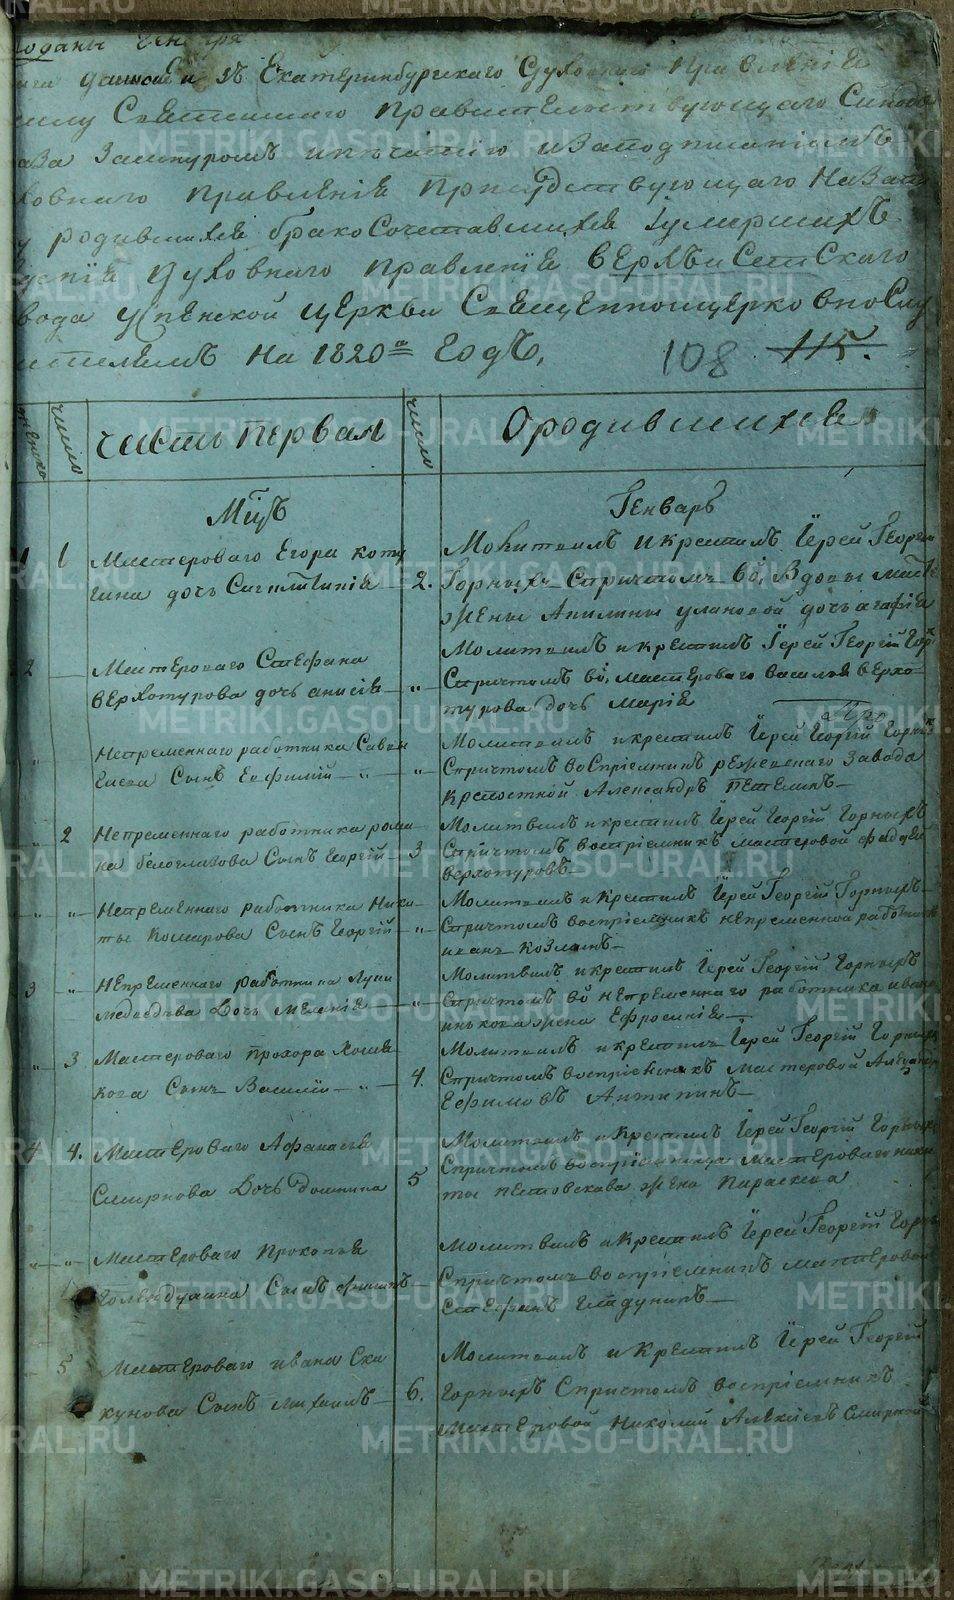 поданы Генваря
даннои изъ Екатеринбургскаго Духовнаго Правленія
силу Святейшаго Правительствующаго Синода
за Зашнуромъ ипечатію изаподписаніемъ
ховнаго правленія Присудствующаго Назап
родившихся бракосочетавшихся Iумершихъ
Духовнаго правленія верхъисетскаго
вода успенской церкви Священноицерковнослу
ителемъ На 1820й годъ,
108 115.
число число Часть первая число Ородившихся
Мцъ Генварь
1 1 Мастероваго Егора
дочь Сигклитикія 2.
Молитвилъ икрестилъ Iерей Георгій
Горныхъ Спричтомъ во, Вдовы
жены Акилины улановой дочь агафія
2 Мастероваго Стефана
верхотурова дочь анисія — „
Молитвилъ икрестилъ Iерей Георгій Гор
Спричтомъ во, мастероваго василья верхо
турова дочь марія
„ Непременнаго работника Савы
Сынъ Евфимій — „ — „
Молитвилъ икрестилъ Iерей Георгій Горных
Спричтомъ воспріемникъ режевскаго завода
крепостной Александръ Петелинъ —
„ 2 Непременнаго работника рома
на белоглазова Сынъ Георгій — 3
Молитвилъ икрестилъ Iерей Георгій Горныхъ
Спричтомъ воспріемникъ мастеровой фадей
верхотуровъ
„ „ Непременнаго работника Ники
ты Комарова Сынъ Георгій — „
Молитвилъ икрестилъ Iерей Георгій Горныхъ
Спричтомъ воспріемникъ непременной работник
иванъ Козминъ —
3 „ Непременнаго работника Луки
медведева Дочь Меланія — „
Молитвилъ икрестилъ Iерей Георгій Горныхъ
Спричтомъ во непременнаго работника ивана
жена Ефросинія —
„ 3 Мастероваго прохора
кова Сынъ Василій — „ — 4.
Молитвилъ икрестилъ Iерей Георгій Горныхъ
Спричтомъ воспріемникъ мастеровой
Ефимовъ Антипинъ —
4 4. Мастероваго Афанасья
Смирнова Дочь Домника 5
Молитвилъ икрестилъ Iерей Георгій Горныхъ
Спричтомъ воспріемница мастероваго ники
ты жена Параскева
„ „ Мастероваго Прокопья
Сынъ филипъ —
Молитвилъ икрестилъ Iерей Георгій Горных
Спричтомъ воспріемникъ мастеровой
Стефанъ Гладунинъ —
5 Мастероваго ивана Ска
кунова Сынъ михаилъ — 6.
Молитвилъ икрестилъ Iерей Георгій
Горныхъ Спричтомъ воспріемникъ
мастеровой Николай Алексеевъ Смирнов
METRIKI.GASO-URAL.RU